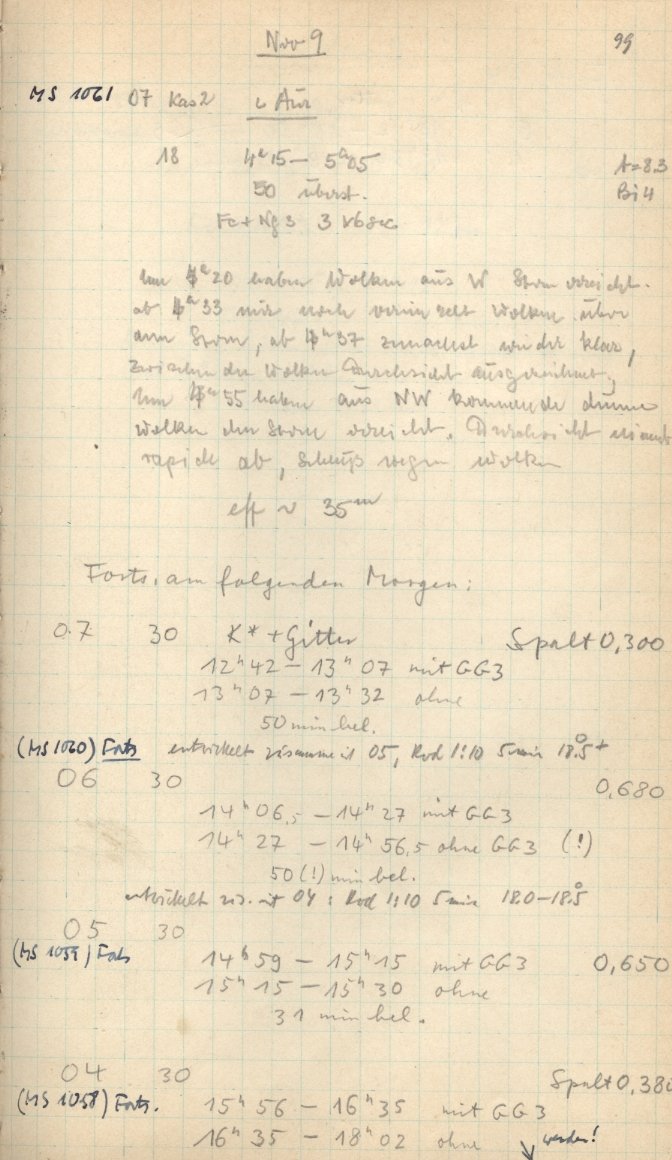 Nov 9 99
MS 1061 07 Kas2 ι Aur
18 4h 15 — 5h 05 A=8.3
50 überst. Bi 4
Fe + Ng 3 3
Um 4h 20 haben Wolken aus W Stern erreicht.
ab 4h 33 nur noch vereinzelt Wolken über
dem Stern, ab 4h 37 zunächst wieder klar,
zwischen den Wolken Durchsicht ausgezeichnet,
Um 4h 55 haben aus NW kommende dünne
Wolken den Stern erreicht. Durchsicht nimmt
rapide ab, Schluß wegen Wolken
eff ~ 35m
Forts. am folgenden Morgen:
07 30 K* + Gitter Spalt 0,300
12h 42 — 13h 07 mit GG3
13h 07 — 13h 32 ohne
50 min bel.
(MS 1060) Forts entwickelt zusamme mit 05, Rod 1:10 5 min 18.5°+
06 30 0,680
14h 06,5 — 14h 27 mit GG3
14h 27 — 14h 56,5 ohne GG3 (!)
50 (!) min bel.
entwickelt zus. mit 04 : Rod 1:10 5 min 18.0—18.5°
05 30
(MS 1059) Forts 14h 59 — 15h 15 mit GG3 0,650
15h 15 — 15h 30 ohne
31 min bel.
04 30 Spalt 0,38
(MS 1058) Forts. 15h 56 — 16h 35 mit GG3
16h 35 — 18h 02 ohne ↘ werden!